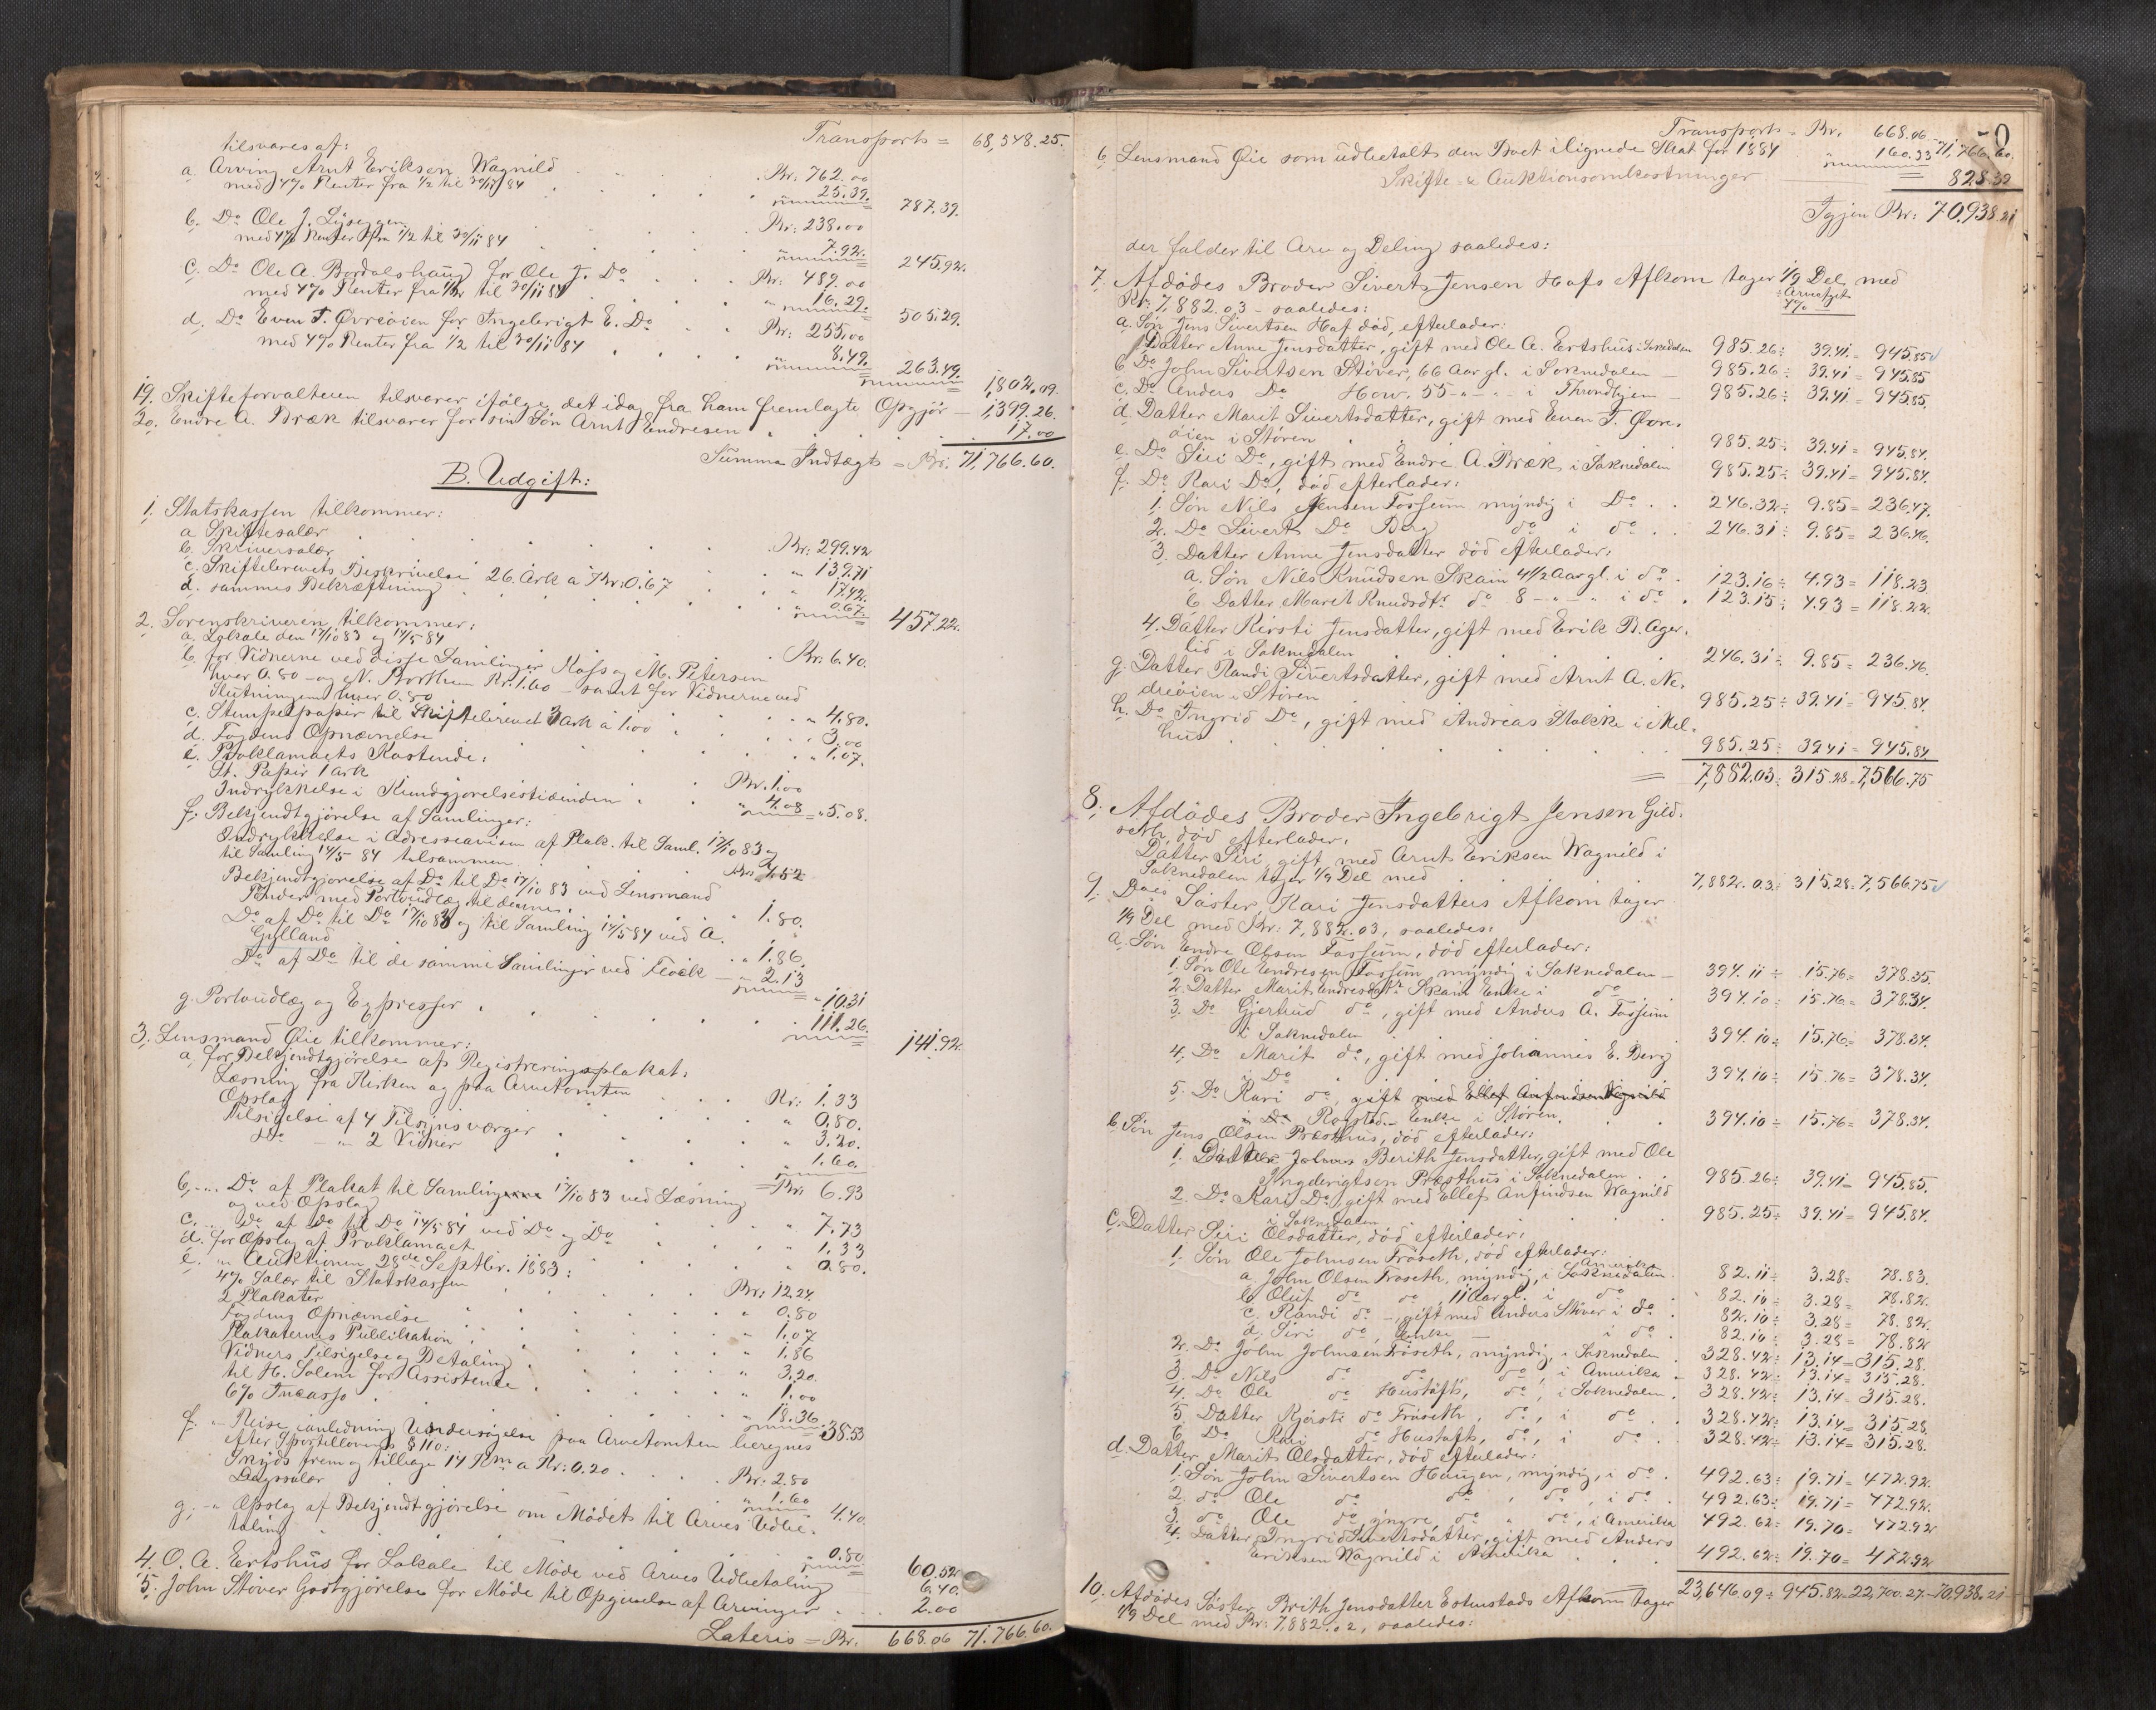 Transport = 68,548.25.
tilsvares af:
a. Arving Arnt Eriksen Wagnild . . Kr: 762.00
med 4% Renter fra 1/2 til 30/11 84 . . . " 25.39. 787.39.
b. Do Ole J. . . . Kr: 238.00
med 4% Renter fra 1/2 til 30/11 84 . . . " 7.92. 245.92.
c. Do Ole A. Bordalshaug for Ole J. Do . . Kr: 489.00
med 4% Renter fra 1/2 til 30/11 84 . . . " 16.29. 505.29.
d. Do Even T. Øvreøien for Ingebrigt E. Do . . Kr: 255.00
med 4% Renter fra 1/2 til 30/11 84 . . . " 8.49. 263.49.
1,802.09.
19. Skifteforvalteren tilsvarer ifølge det idag fra ham fremlagte Opgjør — 1,399.26.
20. Endre A. Bræk tilsvarer for sin Søn Arnt Endresen . . . 17.00
Summa Indtægt = Kr: 71,766.60.
B. Udgift:
1. Statskassen tilkommer:
a. Skiftesalær . . . Kr: 299.42
b. Skriversalær . . . " 139.71
c. Skiftebrevets Beskrivelse 26 Ark a Kr: 0.67 . . " 17.42.
d. sammes Bekræftning . . . " 0.67. 457.22.
2. Sorenskriveren tilkommer:
a. Lokale den 17/10 83 og 14/5 84 . Kr: 6.40.
b. for Vidnerne ved disse Samlinger og M. Petersen
hver 0.80 — og N. Kr. 1.60 — samt for Vidnerne ved
Slutningen hver 0.80 . . . " 4.80.
c. Stempelpapir til Skiftebrevet 3 Ark a 1.00 . . . " 3.00
d. Fogdens Opnævnelse . . . " 1.07.
e. Proklamaets Kostende:
St. Papir 1 Ark Kr. 1.00
Indrykkelse i Kundgjørelsestidenden . . " 4.08 = " 5.08.
f. Bekjendtgjørelse af Samlinger:
Indrykkelse i Adresseavisen af Plak. til Saml. 17/10 83 og
til Samling 14/5 84 tilsammen . . Kr: 4.52
Bekjendtgjørelse af Do til Do 17/10 83 ved Lensmand
med Portoudlæg til denne. . . " 1.80.
Do af Do til Do 17/10 83 og til Samling 14/5 84 ved A.
Gylland . . " 1.86.
Do af Do til de samme Samlinger ved — " 2.13 " 10.31
g. Portoudlæg og Expresser . . . " 111.26. 141.92.
3. Lensmand Øie tilkommer:
a. for Bekjendtgjørelse af Registreringsplakat.
Læsning fra Kirken og paa Arvetomten . . Kr: 1.33
Opslag . . . " 0.80.
Tilsigelse af 4 Tilsynsværger . . " 3.20.
Do — " 2 Vidner . . . " 1.60.
= Kr: 6.93
b. — " Do af Plakat til Samlingerne 17/10 83 ved Læsning
og ved Opslag . . . " 7.73
c. — " Do af Do til Do 14/5 84 ved Do og Do . . " 1.33
d. for Opslag af Proklamaet . . . " 0.80.
e. " Auktionen 28de Septbr. 1883:
4% Salær til Statskassen . . Kr: 12.24.
2 Plakater . . . " 0.80
Fogdens Opnævnelse . . . " 1.07
Plakaternes Publikation . . . " 1.86
Vidners Tilsigelse og Betaling . . " 3.20.
til H. Solem for Assistence . . " 1.00
6% Incasso . . . " 18.36. " 38.53
f. " Reise i anledning Undersøgelse paa Arvetomten beregnes
efter Sportellovens § 110:
Skyds frem og tilbage 14 Km a Kr: 0.20 . . Kr: 2.80
Dagssalær . . . " 1.60 4.40.
g. — " Opslag af Bekjendtgjørelse om Mødet til Arvens Udbe-
taling . . . " 0.80. 60.52
4. O. A. Ertshus for Lokale til Møde ved Arves Udbetaling 6.40.
5. John Støver Godtgjørelse for Møde til Opgivelse af Arvinger . . 2.00
Lateris = Kr. 668.06 71.766.60.
Transport = Kr. 668.06 — 71,766.60.
6. Lensmand Øie som udbetalt den Boet ilignede Skat for 1884 " 160.33
Skifte- & Auktionsomkostninger = 828.39
Igjen Kr: 70,938.21
der falder til Arv og Deling saaledes:
7. Afdødes Broder Sivert Jensen Hofs Afkom tager 1/9 Del med
Kr: 7,882.03 — saaledes: ÷ Arveafgift 4% =
a. Søn Jens Sivertsen Hof død, efterlader:
Datter Anne Jensdatter, gift med Ole A. Ertshus i Soknedalen 985.26 ÷ 39.41 = 945.85
b. Do John Sivertsen Støver, 66 Aar gl. i Soknedalen — 985.26 ÷ 39.41 = 945.85
c. Do Anders Do How. 55 — " — " i Throndhjem — 985.26 ÷ 39.41 = 945.85.
d. Datter Marit Sivertsdatter, gift med Even T. Øvre-
øien i Støren . . 985.25 ÷ 39.41 = 945.84.
e. Do Siri Do, gift med Endre A. Bræk i Soknedalen 985.25 ÷ 39.41 = 945.84.
f. Do Kari Do, død efterlader:
1. Søn Nils Jensen Fossum myndig i Do . . 246.32 ÷ 9.85 = 236.47.
2. Do Sivert Do Berg do i do . . 246.31 ÷ 9.85 = 236.46.
3. Datter Anne Jensdatter død efterlader:
a. Søn Nils Knudsen Skain 4 1/2 Aar gl. i do . 123.16 ÷ 4.93 = 118.23
b. Datter Marit Knudsdtr do 8 — " — " i do . 123.15 ÷ 4.93 = 118.22.
4. Datter Kirsti Jensdatter, gift med Erik B. Ager-
lid i Soknedalen . . . 246.31 ÷ 9.85 = 236.46.
g. Datter Randi Sivertsdatter, gift med Arnt A. Ne-
dreøien i Støren . . . 985.25 ÷ 39.41 = 945.84.
h. Do Ingrid Do, gift med Andreas Stokke i Mel-
hus . . . 985.25 ÷ 39.41 = 945.84
= 7,882.03 ÷ 315.28 = 7,566.75
8. Afdødes Broder Ingebrigt Jensen Gild-
seth, død efterlader:
Datter Siri gift med Arnt Eriksen Wagnild i
Soknedalen tager 1/9 Del med 7,882.03 ÷ 315.28 = 7,566.75
9. Does Søster Kari Jensdatters Afkom tager
1/9 Del med Kr: 7,882.03, saaledes:
a. Søn Endre Olsen Fossum, død efterlader:
1. Søn Ole Endresen Fossum, myndig i Soknedalen — 394.11 ÷ 15.76 = 378.35.
2. Datter Marit Endresdtr Skain Enke i do . 394.10 ÷ 15.76 = 378.34.
3. Do Gjertrud do, gift med Anders A. Fossum
i Soknedalen . . 394.10 ÷ 15.76 = 378.34.
4. Do Marit do, gift med Johannes E. Berg
i Do . . 394.10 ÷ 15.76 = 378.34.
5. Do Kari do, gift med Ellef Anfindsen Wagnild
i Do Rogstad — Enke i Støren. . . 394.10 ÷ 15.76 = 378.34.
b. Søn Jens Olsen Præsthus, død efterlader:
1. Datter Berith Jensdatter, gift med Ole
Ingebrigtsen Præsthus i Soknedalen . . 985.26 ÷ 39.41 = 945.85.
2. Do Kari Do, gift med Ellef Anfindsen Wagnild
i Soknedalen . . . 985.25 ÷ 39.41 = 945.84.
c. Datter Siri Olsdatter, død efterlader:
1. Søn Ole Johnsen Frøseth, død efterlader:
Amerika
a. John Olsen Frøseth, myndig, i Soknedalen . 82.11 ÷ 3.28 = 78.83.
b. Oluf do do 11 Aar gl. i do . 82.10 ÷ 3.28 = 78.82.
c. Randi do —, gift med Anders Støver i do . 82.10 ÷ 3.28 = 78.82.
d. Siri do, — i do . 82.10 ÷ 3.28 = 78.82
2. Do John Johnsen Frøseth, myndig, i Soknedalen . 328.42 ÷ 13.14 = 315.28.
3. Do Nils do do do, i Amerika — 328.42 ÷ 13.14 = 315.28.
4. Do Ole do Hustøft, do, i Soknedalen . 328.42 ÷ 13.14 = 315.28.
5. Datter Kjersti do Frøseth, do, i do . . 328.42 ÷ 13.14 = 315.28
6. Do Kari do Hustøft, do, i do . . 328.42 ÷ 13.14 = 315.28.
d. Datter Marit Olsdatter, død efterlader:
1. Søn John Sivertsen Haugen, myndig, i do . 492.63 ÷ 19.71 = 472.92.
2. do Ole do do, do, i do . 492.63 ÷ 19.71 = 472.92.
3. do Ole do, yngre, do " do, i Amerika 492.62 ÷ 19.70 = 472.92
4. Datter Ingrid Sivertsdatter, gift med Anders
Eriksen Wagnild i Amerika . . . 492.62 ÷ 19.70 = 472.92
= 23,646.09 ÷ 945.82 = 22,700.27 — 70,938.21
10. Afdødes Søster Brith Jensdatter Afkom tager
1/9 Del med Kr: 7,882.02, saaledes: